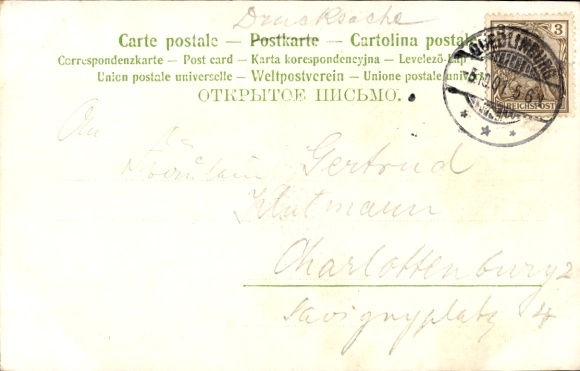 Drucksache
Carte postale — Postkarte — Cartolina postale
Correspondenzkarte — Post card — Karta korespondencyjna — Levelező-Lap
Union postale universelle — Weltpostverein — Unione postale univ
ОТКРЫТОЕ ПИСЬМО.
3
QUEDLINBURG
5.10.01. 5-6
REICHSPOST
An
Fräulein Gertrud
Klutmann
Charlottenburg 2
Savignyplatz